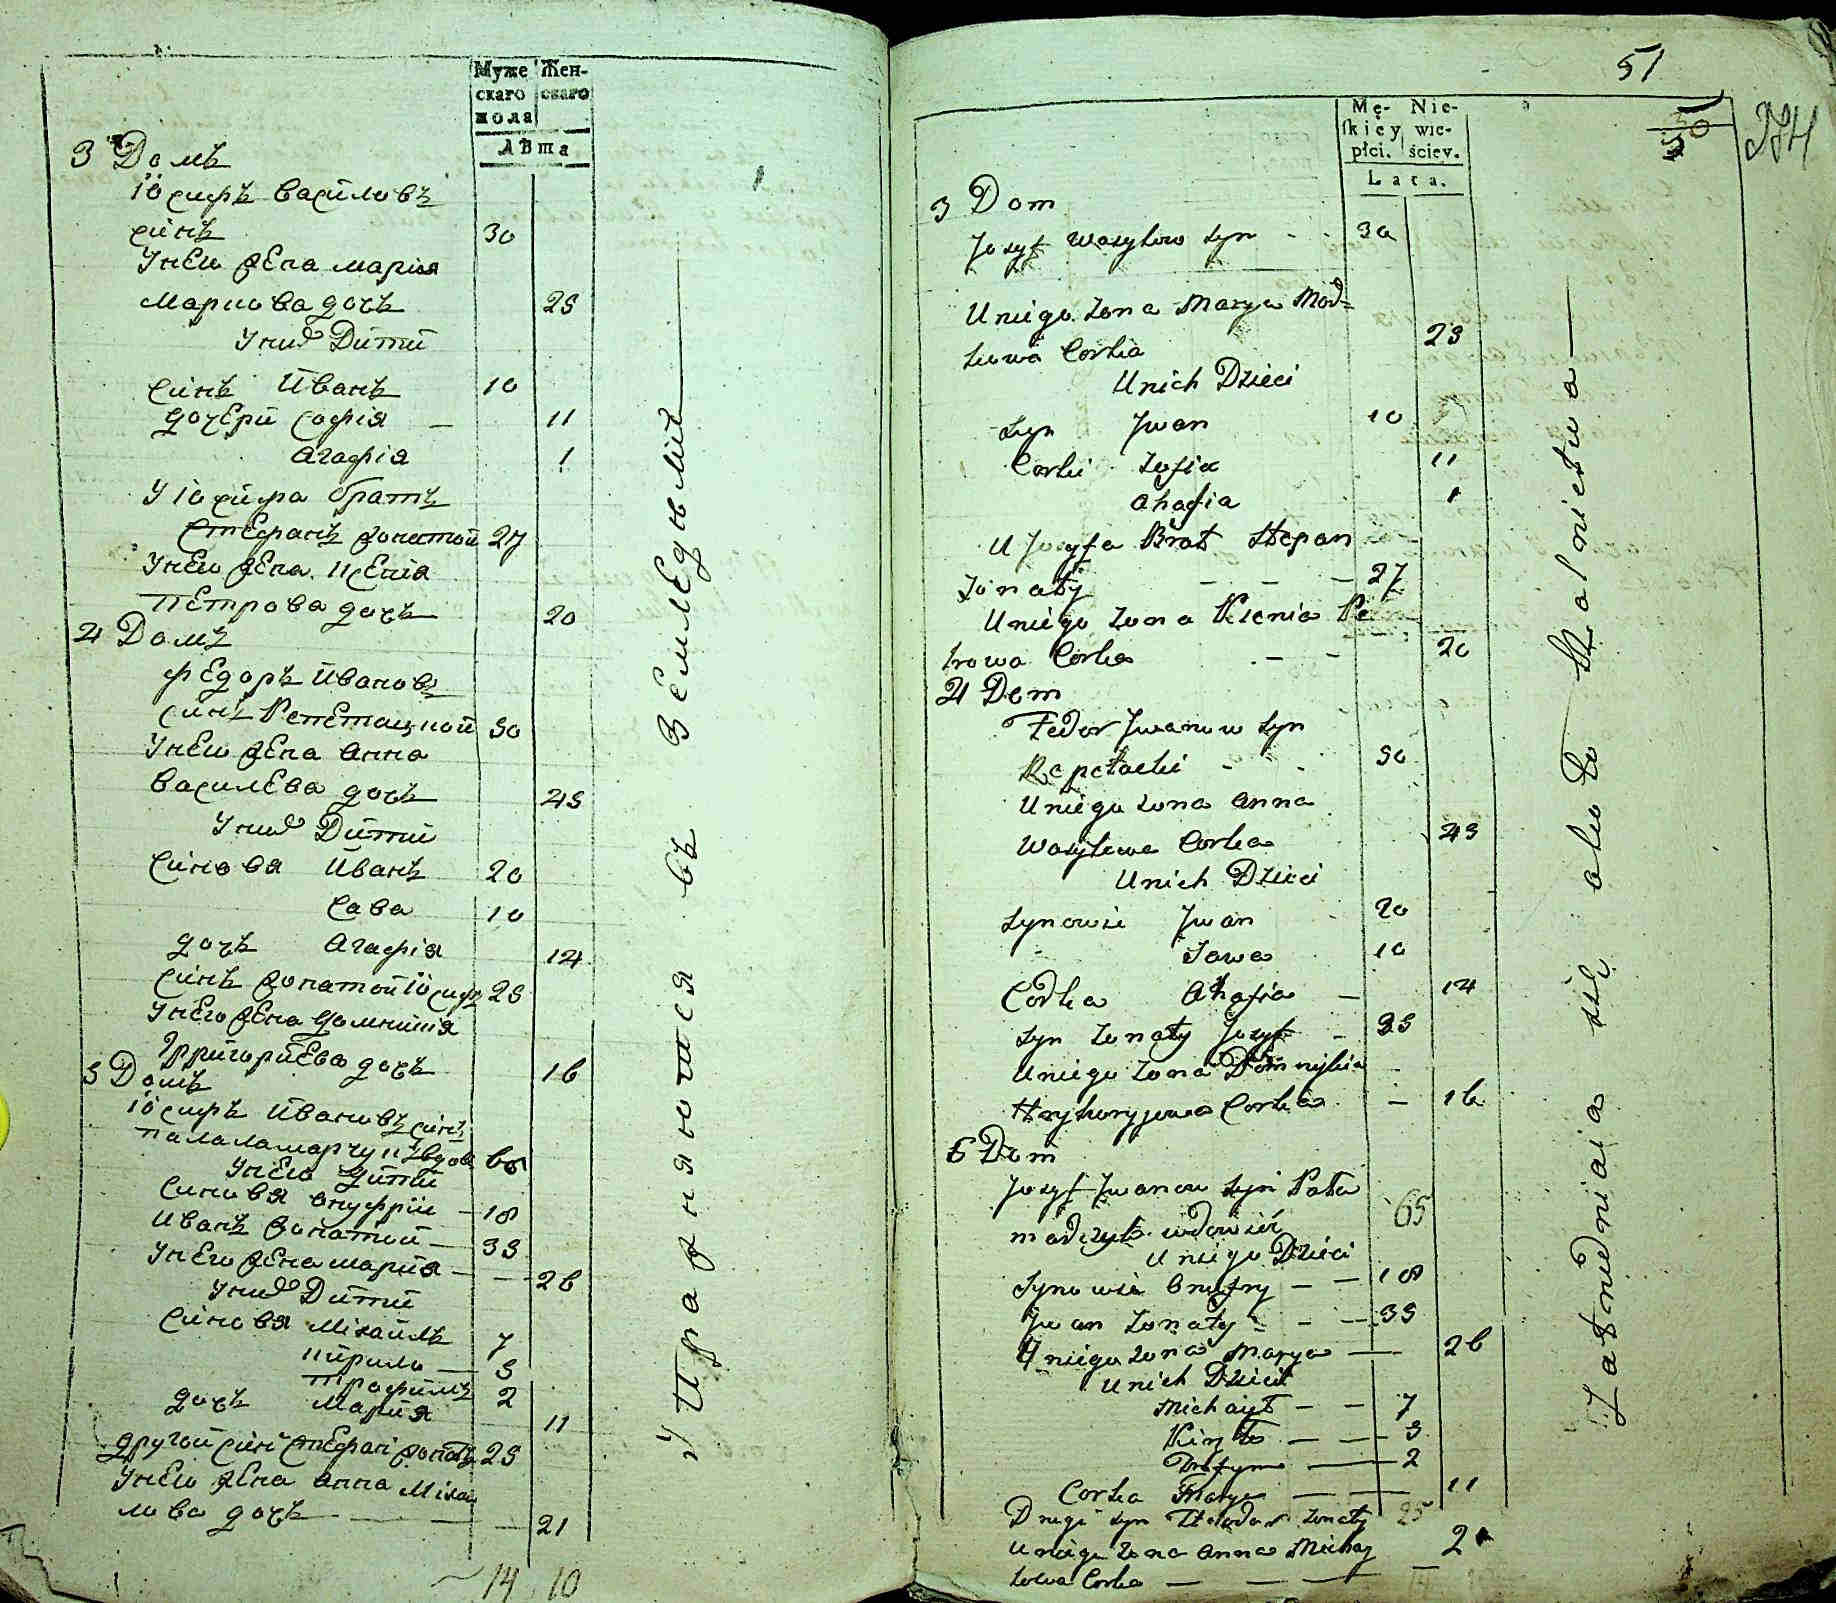 Муже Жен-
скаго скаго
пола
Лѣта
3 Домъ
Іосифъ Василовъ
синъ 30
У него жена мария
Маркова дочъ 25
У них Дѣтѣй
Синъ Иванъ 10
дочери Софія — 11
Агафія 1
У Іосифа братъ
Стефанъ жонатой 27
У нево жена Ксенія
Петрова дочъ 20
4 Домъ
Федоръ Ивановъ
синъ Репетацкой 50
У нево жена Анна
Василева дочъ 45
У них Дити
Синовя Иванъ 20
Сава 10
дочъ Агафія 14
Синъ жонатой Іосиф 25
У него жена Домникия
Григориева дочъ 16
5 Домъ
Іосифъ Ивановъ синъ
паламарчукъ вдов 65
У нево дити
Синовя Ануфрій — 18
Иванъ жонатой — 35
У него жена мария — — 26
У них Дити
Синовя Міхайлъ 7
Кирило — 5
Трофимъ 2
дочъ Мария 11
другой синъ Стефан жонатъ 25
У нево жена Анна Міхай
лова дочъ — — — 21
14 10
Упражняются въ Земледелие
51
50
Mę- Nie-
skiey wie-
płci. ściey.
Lata.
3 Dom
Jozyf Wasylow syn - - 30
U niego zona Marya Mar-
kowa Corka 25
U nich Dzieci
Syn Jwan 10
Corki Zofia 11
Ahafia 1
U Jozyfa Brat Stepan
Zonaty - - - 27
U niego zona Ksenia Pe
trowa Corka - - 20
4 Dom
Fedor Jwanow syn
Repetacki - - 50
U niego zona Anna
Wasylowa Corka 45
U nich Dzieci
Synowie Jwan 20
Sawa 10
Corka Ahafia — 14
Syn zonaty Jozyf - 25
U niego zona Domnikia
Hryhoryjowa Corka — 16
5 Dom
Jozyf Jwanow syn Pała
marczuk wdowiec 65
U niego Dzieci
Synowie Onufry — — 18
Jwan zonaty - - — 35
U niego zona Marya — — 26
U nich Dzieci
Michaył — — 7
Kiryło — — 5
Trofym — — 2
Corka Marya — — 11
Drugi syn Teodor zonaty 25
U niego zona Anna Michay
łowa Corka — — — 21
Zatrudniaia się około Rolnictwa